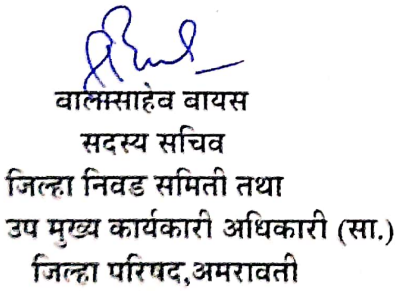 वालासाहेब बायस
सदस्य सचिव
जिल्हा निवड समिती तथा
उप मुख्य कार्यकारी अधिकारी (सा.)
जिल्हा परिषद,अमरावती